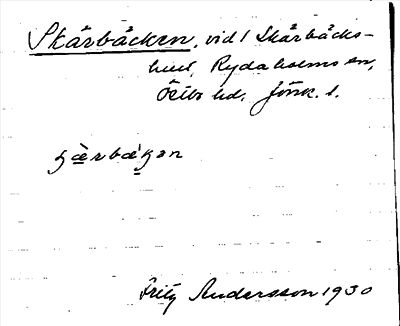 Skärbäcken, vid 1 Skärbäcks-
hult, Rydaholms sn,
Östbo hd. Jönk. l.
Fritz Andersson 1930